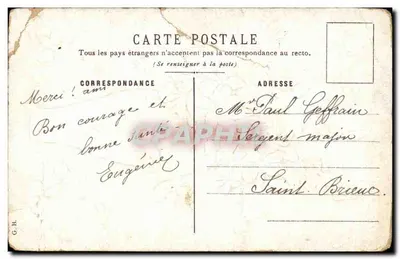 CARTE POSTALE
Tous les pays étrangers n'acceptent pas la correspondance au recto.
(Se renseigner à la poste)
CORRESPONDANCE
Merci! ami
Bon courage et
bonne santé
Eugénie
ADRESSE
Mr Paul Geffrain
Sergent major
Saint-Brieuc
G. H.